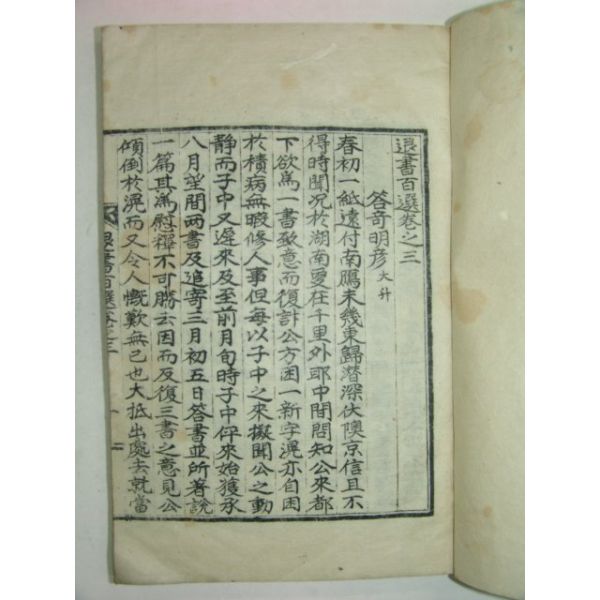 退書百選卷之三
答奇明彦大升
春初一紙遠付南鴈未幾東歸潜深伏隩京信且不
得時聞况於湖南夐在千里外耶中間問知公來都
下欲爲一書致意而復計公方困一新字滉亦自困
於積病無暇修人事但每以子中之來擬聞公之動
靜而子中又遲來及至前月旬時子中伻來始獲承
八月望間两書及追寄三月初五日答書並所著說
一篇其爲慰釋不可勝云因而反復三書之意見公
傾倒於滉而又令人慨歎無已也大抵出處去就當
退書百選卷之三
一